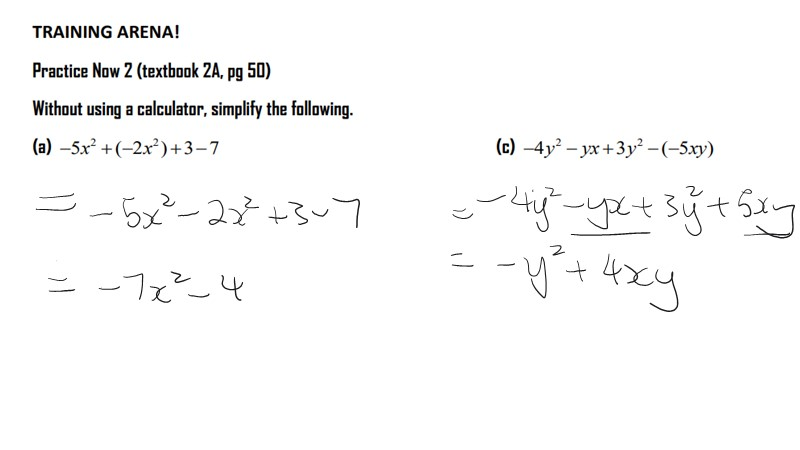 TRAINING ARENA!
Practice Now 2 (textbook 2A, pg 50)
Without using a calculator, simplify the following.
(a) −5x² + (−2x²) + 3 − 7
= −5x² − 2x² + 3 − 7
= −7x² − 4
(c) −4y² − yx + 3y² − (−5xy)
= −4y² − yx + 3y² + 5xy
= −y² + 4xy